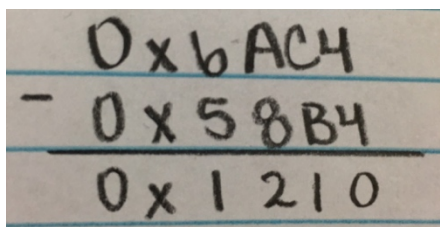 0x6AC4
- 0x58B4
0x1210